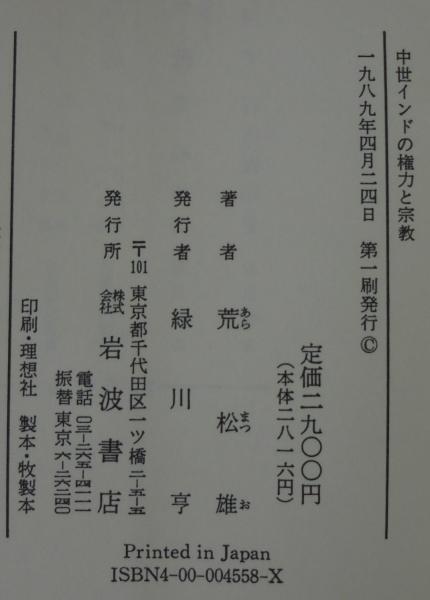 中世インドの権力と宗教
一九八九年四月二四日 第一刷発行 ©
定価二九〇〇円
(本体二八一六円)
著者 荒松雄
あらまつお
発行者 緑川亨
〒101 東京都千代田区一ツ橋二-五-五
発行所 株式会社 岩波書店
電話 〇三-二六五-四一一一
振替 東京 六-二六二四〇
印刷・理想社 製本・牧製本
Printed in Japan
ISBN4-00-004558-X